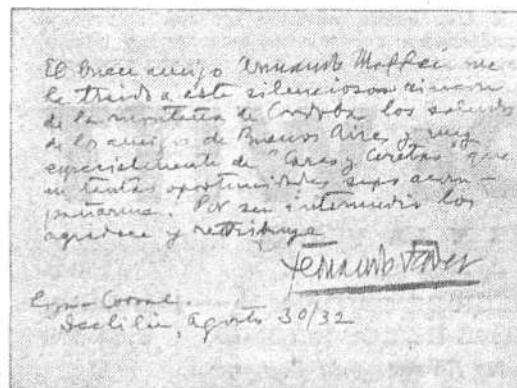 El buen amigo Armando Maffei me
ha traido a este silencioso rincon
de la montaña de Cordoba los saludos
de los amigos de Buenos Aires y muy
especialmente de "Caras y Caretas" que
en tantas oportunidades supo acom-
pañarme. Por su intermedio los
agradece y retribuye
Fernando Fader
Loza Corral.
Ischilin, agosto 30/32